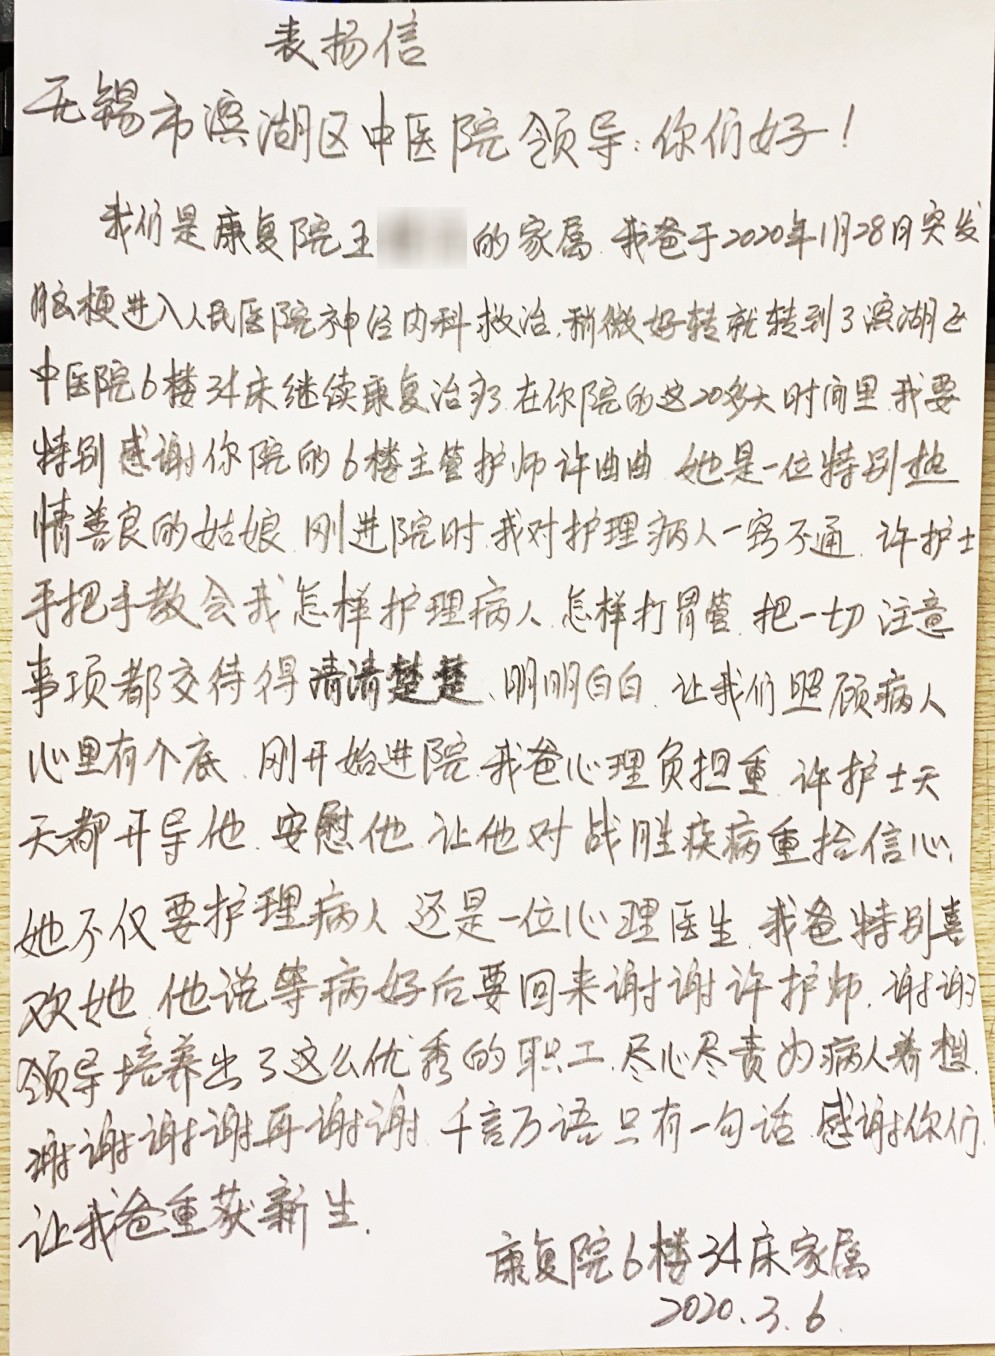 表扬信
无锡市滨湖区中医院领导:你们好!
我们是康复院王的家属.我爸于2020年1月28日突发
脑梗进入人民医院神经内科救治.稍微好转就转到了滨湖区
中医院6楼34床继续康复治疗.在你院的这20多天时间里.我要
特别感谢你院的6楼主管护师许曲曲 她是一位特别热
情善良的姑娘.刚进院时.我对护理病人一窍不通.许护士
手把手教会我怎样护理病人.怎样打胃管.把一切注意
事项都交待得清清楚楚、明明白白.让我们照顾病人
心里有个底.刚开始进院.我爸心理负担重.许护士天
天都开导他.安慰他.让他对战胜疾病重拾信心.
她不仅要护理病人 还是一位心理医生.我爸特别喜
欢她.他说等病好后要回来谢谢许护师.谢谢
领导培养出了这么优秀的职工.尽心尽责为病人着想.
谢谢谢谢再谢谢.千言万语只有一句话.感谢你们.
让我爸重获新生.
康复院6楼34床家属
2020.3.6.